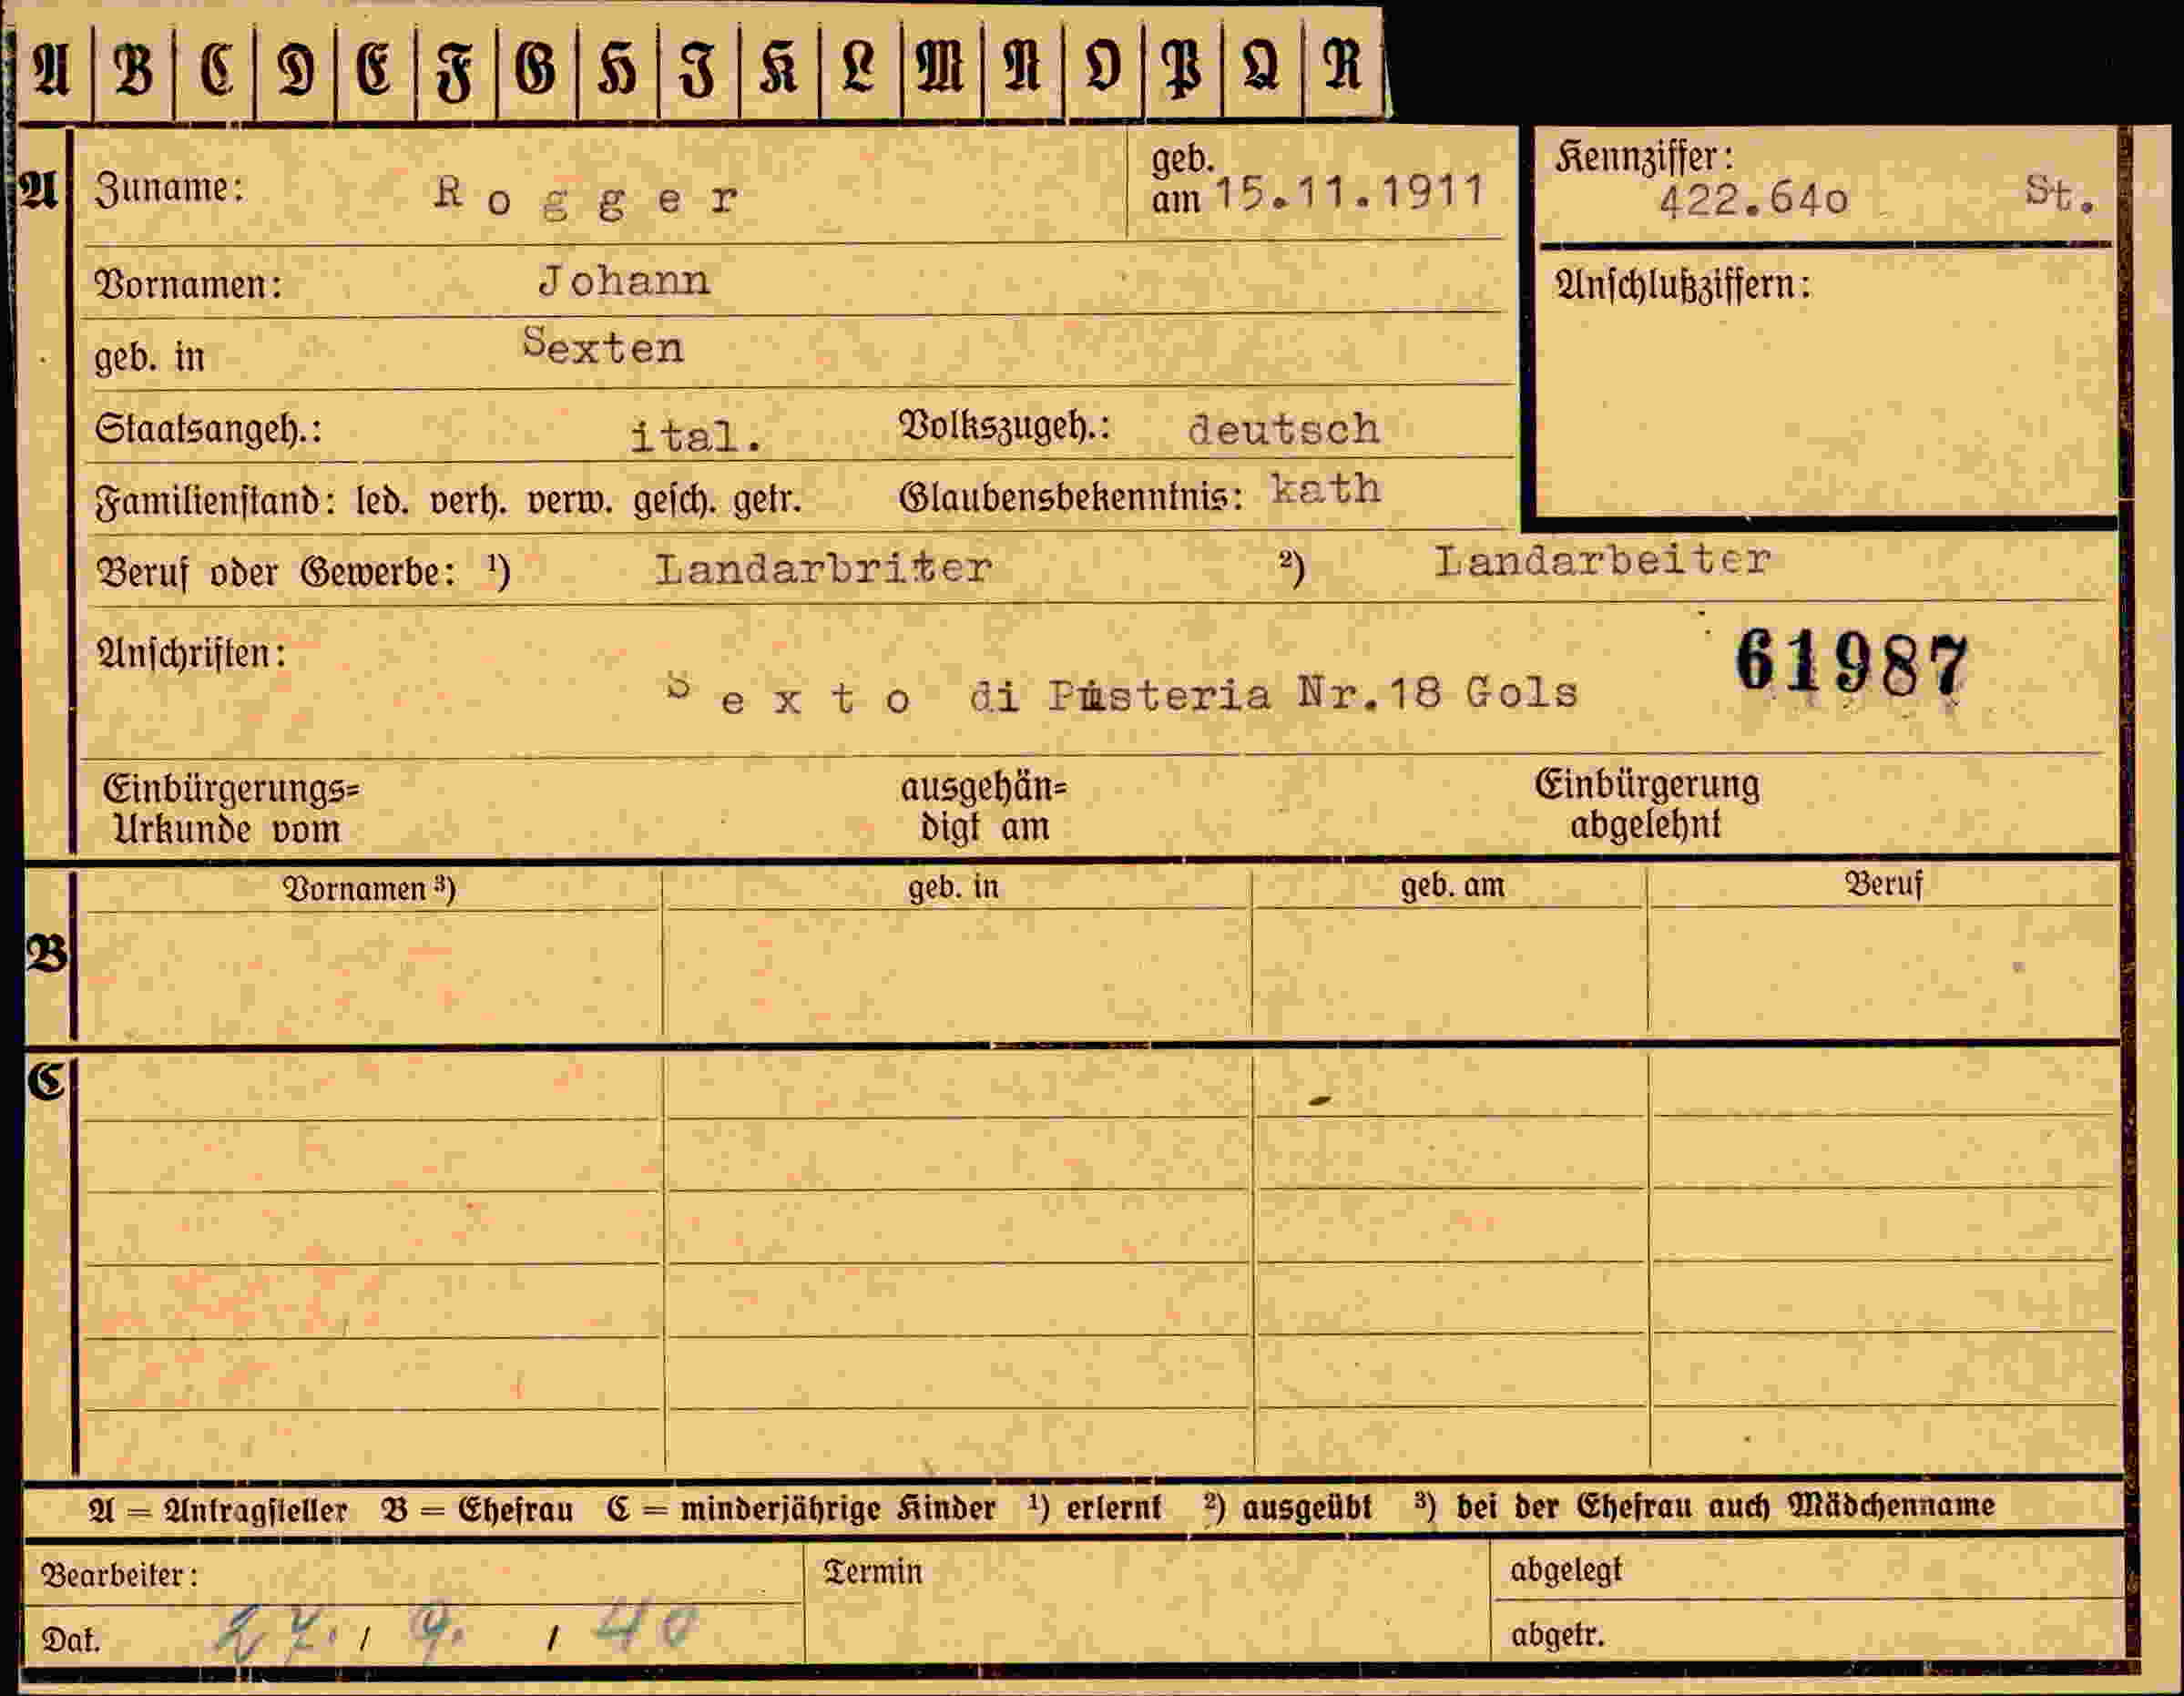 A B C D E F G H J K L M N O P Q R
A Zuname: Rogger geb. am 15.11.1911 Kennziffer: 422.64o St.
Vornamen: Johann Anschlußziffern:
geb. in Sexten
Staatsangeh.: ital. Volkszugeh.: deutsch
Familienstand: led. verh. verw. gesch. getr. Glaubensbekenntnis: kath
Beruf oder Gewerbe: ¹) Landarbriter ²) Landarbeiter
Anschriften: 61987
Sexto di Pusteria Nr.18 Gols
Einbürgerungs= ausgehän= Einbürgerung
Urkunde vom digt am abgelehnt
Vornamen ³) geb. in geb. am Beruf
B
C
A = Antragsteller B = Ehefrau C = minderjährige Kinder ¹) erlernt ²) ausgeübt ³) bei der Ehefrau auch Mädchenname
Bearbeiter: Termin abgelegt
Dat. 27. / 9. / 40 abgetr.